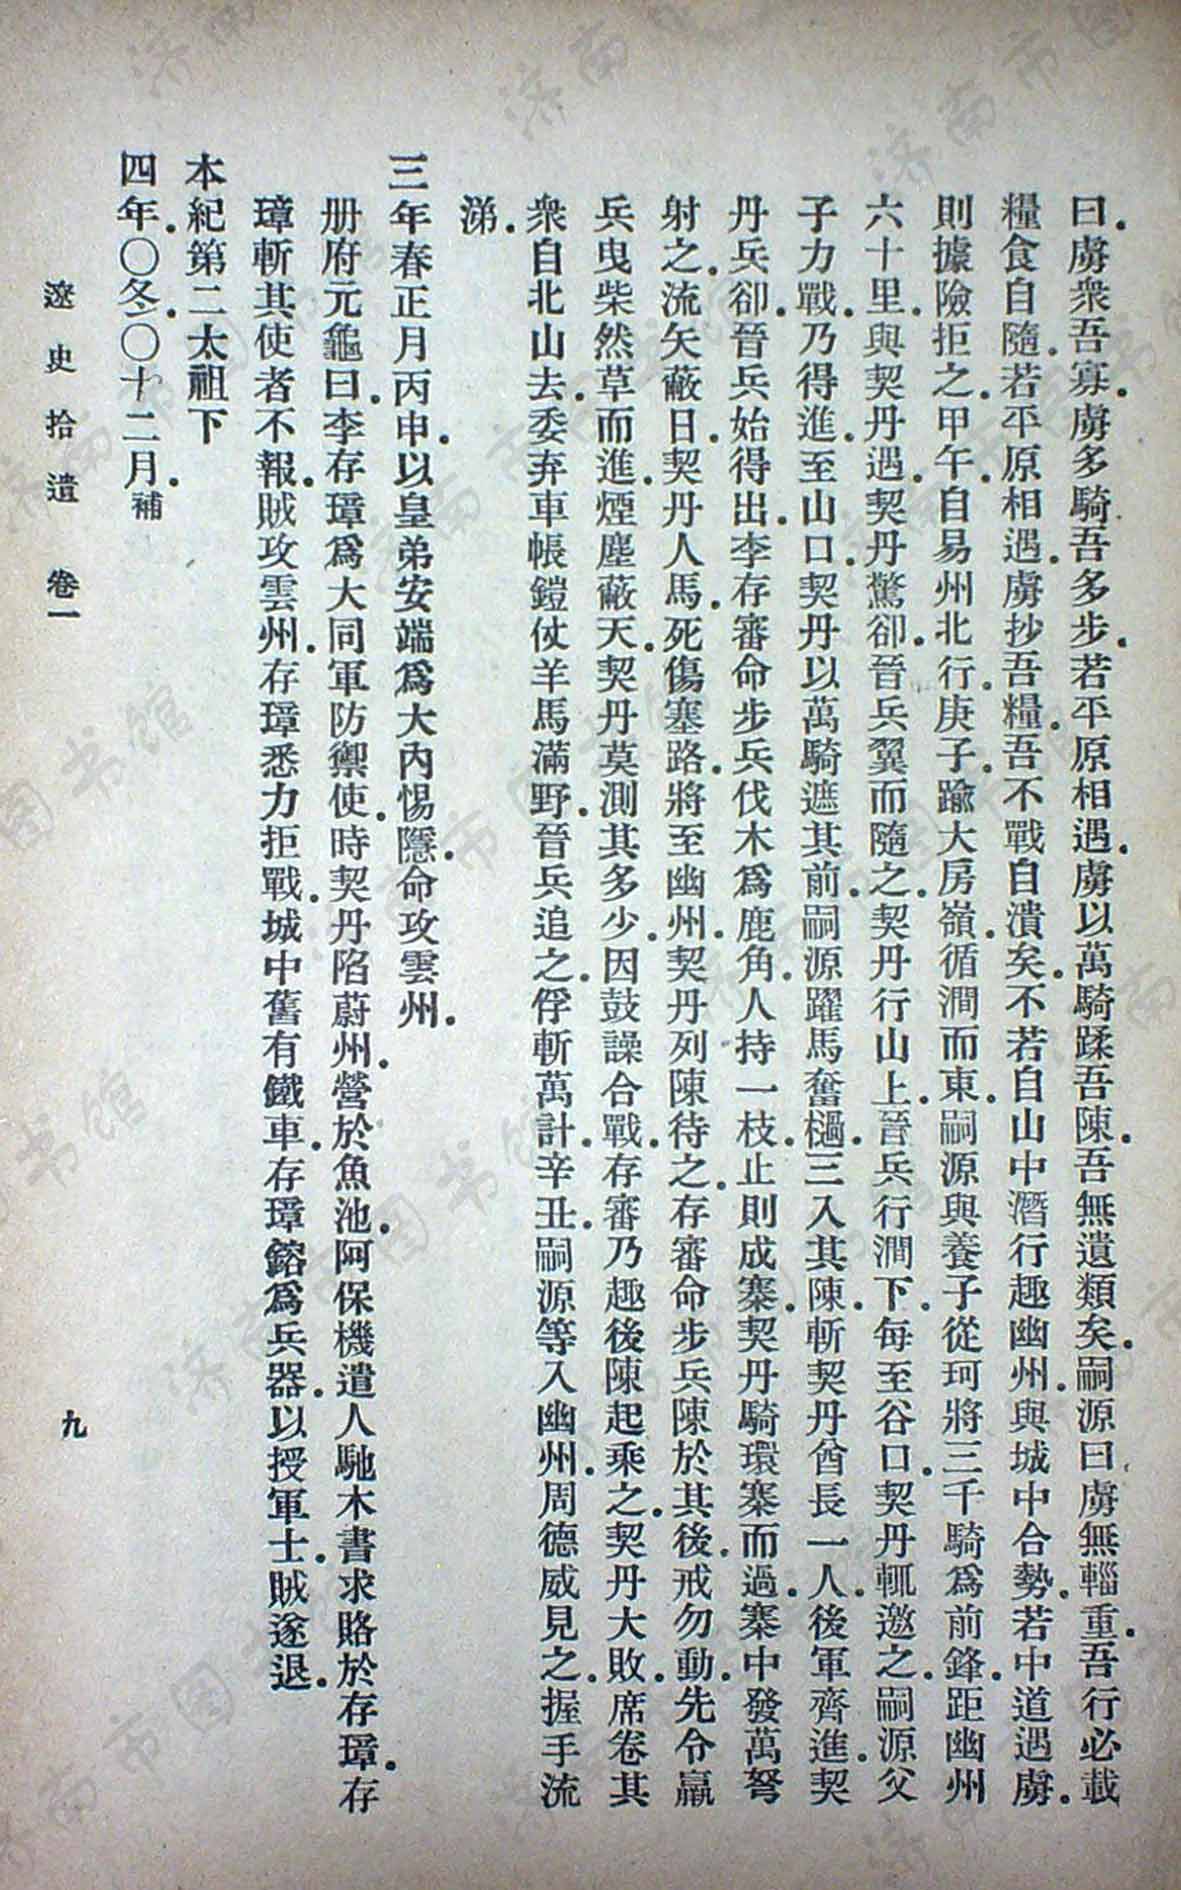 曰。虜衆吾寡。虜多騎吾多步。若平原相遇。虜以萬騎蹂吾陳。吾無遺類矣。嗣源曰虜無輜重。吾行必載
糧食自隨。若平原相遇。虜抄吾糧。吾不戰自潰矣。不若自山中潛行趣幽州。與城中合勢。若中道遇虜。
則據險拒之。甲午。自易州北行。庚子。踰大房嶺。循澗而東。嗣源與養子從珂將三千騎爲前鋒。距幽州
六十里。與契丹遇。契丹驚卻。晉兵翼而隨之。契丹行山上。晉兵行澗下。每至谷口。契丹輒邀之。嗣源父
子力戰。乃得進。至山口。契丹以萬騎遮其前。嗣源躍馬奮檛。三入其陳。斬契丹酋長一人。後軍齊進。契
丹兵卻。晉兵始得出。李存審命步兵伐木爲鹿角。人持一枝。止則成寨。契丹騎環寨而過。寨中發萬弩
射之。流矢蔽日。契丹人馬死傷塞路。將至幽州。契丹列陳待之。存審命步兵陳於其後。戒勿動。先令羸
兵曳柴然草而進。煙塵蔽天。契丹莫測其多少。因鼓譟合戰。存審乃趣後陳起乘之。契丹大敗。席卷其
衆自北山去。委弃車帳鎧仗羊馬滿野。晉兵追之。俘斬萬計。辛丑。嗣源等入幽州。周德威見之。握手流
涕。
三年春正月丙申。以皇弟安端爲大內惕隱。命攻雲州。
册府元龜曰。李存璋爲大同軍防禦使。時契丹陷蔚州。營於魚池。阿保機遣人馳木書求賂於存璋。存
璋斬其使者不報。賊攻雲州。存璋悉力拒戰。城中舊有鐵車。存璋鎔爲兵器。以授軍士。賊遂退。
本紀第二太祖下
四年。〇冬。〇十二月。補
遼史拾遺 卷一 九
济南市图书馆